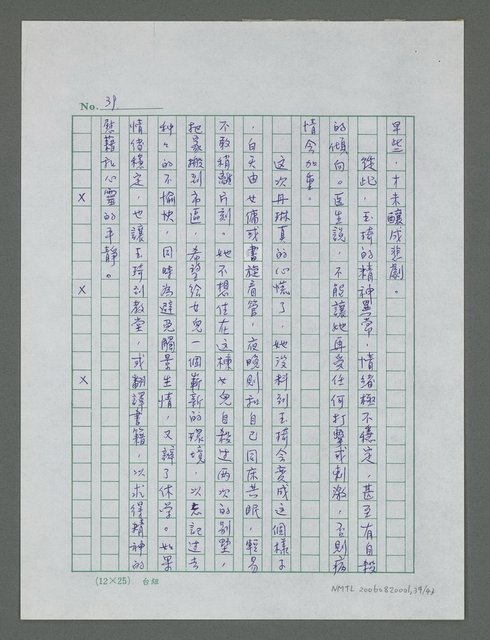 No. 39
早些,才未釀成悲劇。
從此,玉琦的精神異常,情緒極不穩定,甚至有自殺
的傾向。医生說,不能讓她再受任何打擊或刺激,否則病
情会加重。
這次丹琳真的心慌了,她没料到玉琦会变成這個樣子
,白天由女傭或書旋看管,夜晚則和自己同床共眠,輕易
不敢稍離片刻。她不想住在這棟女兒自殺过兩次的別墅,
把家搬到市區,希望给女兒一個嶄新的環境,以忘記过去
种々的不愉快,同時為避免觸景生情,又辦了休学。如果
情绪穩定,也讓玉琦到教堂,或翻譯書籍,以求得精神的
慰藉和心靈的平靜。
× × ×
(12×25) 台紐
NMTL 20060820001,39/43